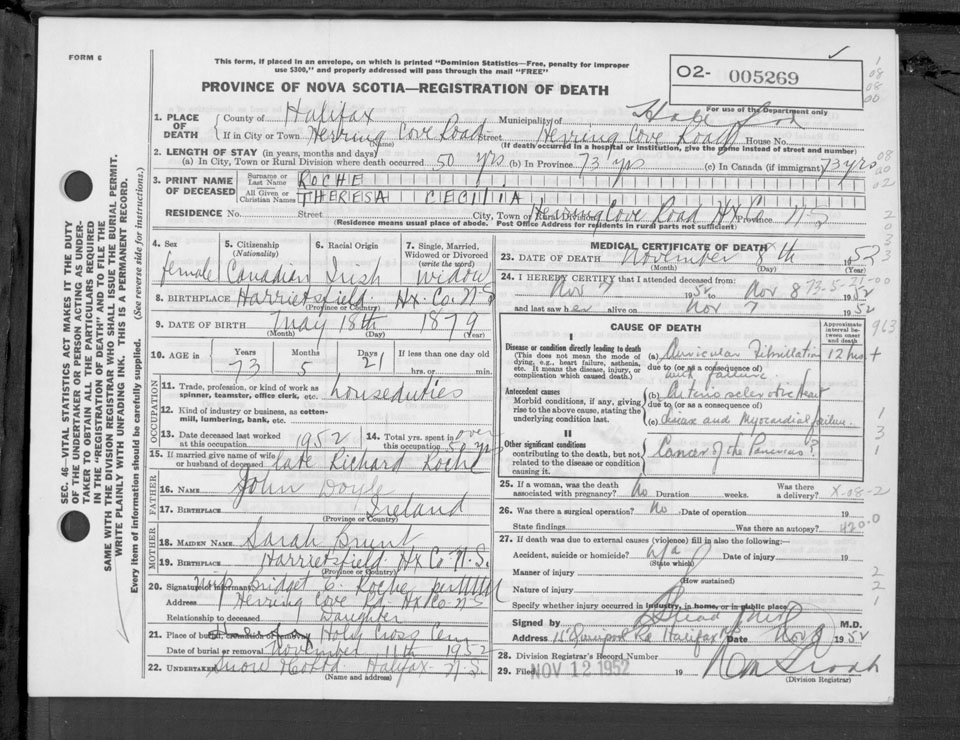 FORM 6
This form, if placed in an envelope, on which is printed "Dominion Statistics—Free, penalty for improper
use $300," and properly addressed will pass through the mail "FREE"
O2- 005269
For use of the Department only
PROVINCE OF NOVA SCOTIA—REGISTRATION OF DEATH
1. PLACE OF DEATH
County of Halifax Municipality of
If in City or Town Herring Cove Road Street Herring Cove Road House No.
(Name) (If death occurred in a hospital or institution, give the name instead of street and number)
2. LENGTH OF STAY (in years, months and days)
(a) In City, Town or Rural Division where death occurred 50 yrs (b) In Province 73 yrs (c) In Canada (if immigrant) 73 yrs
3. PRINT NAME OF DECEASED
Surname or Last Name ROCHE
All Given or Christian Names THERESA CECILIA
RESIDENCE No. Street City, Town or Rural Division Herring Cove Road Hx Co Province N S
(Residence means usual place of abode. Post Office Address for residents in rural parts not sufficient)
4. Sex female
5. Citizenship (Nationality) Canadian
6. Racial Origin Irish
7. Single, Married, Widowed or Divorced (write the word) widow
8. BIRTHPLACE Harrietsfield Hx. Co. N S
(Province or Country)
9. DATE OF BIRTH May 18th 1879
(Month) (Day) (Year)
10. AGE in Years 73 Months 5 Days 21 If less than one day old hrs. or min.
OCCUPATION
11. Trade, profession, or kind of work as spinner, teamster, office clerk, etc. houseduties
12. Kind of industry or business, as cotton-mill, lumbering, bank, etc.
13. Date deceased last worked at this occupation 1952
14. Total yrs. spent in this occupation over 52 yrs
15. If married give name of wife or husband of deceased late Richard Roche
FATHER
16. Name John Doyle
17. Birthplace Ireland
(Province or Country)
MOTHER
18. Maiden Name Sarah Brunt
19. Birthplace Harrietsfield Hx Co N.S.
(Province or Country)
20. Signature of informant Bridget C. Roche
Address Herring Cove Rd Hx Co N S
Relationship to deceased Daughter
21. Place of burial, cremation or removal Holy Cross Cem
Date of burial or removal November 11th 1952
22. Undertaker Halifax N.S.
(Name and address)
MEDICAL CERTIFICATE OF DEATH
23. DATE OF DEATH November 8th 1952
(Month) (Day) (Year)
24. I HEREBY CERTIFY that I attended deceased from:
Nov 7 1952 to Nov 8 1952
73-5-21-00
and last saw her alive on Nov 7 1952
CAUSE OF DEATH
Approximate interval between onset and death
I
Disease or condition directly leading to death
(This does not mean the mode of dying, e.g., heart failure, asthenia, etc. It means the disease, injury, or complication which caused death.)
(a) Auricular Fibrillation 12 hrs +
due to (or as a consequence of)
with failure
Antecedent causes
Morbid conditions, if any, giving rise to the above cause, stating the underlying condition last.
(b) Arteriosclerotic Heart
due to (or as a consequence of)
(c) Disease and Myocardial failure.
II
Other significant conditions
contributing to the death, but not related to the disease or condition causing it.
Cancer of the Pancreas?
25. If a woman, was the death associated with pregnancy? No Duration weeks. Was there a delivery? X-08-2
26. Was there a surgical operation? No Date of operation 19
State findings Was there an autopsy? 420.0
27. If death was due to external causes (violence) fill in also the following:—
Accident, suicide or homicide? n/a Date of injury 19
(State which)
Manner of injury
(How sustained)
Nature of injury
Specify whether injury occurred in industry, in home, or in public place
Signed by M.D.
Address Halifax Date Nov 8 1952
28. Division Registrar's Record Number
29. Filed NOV 12 1952 19
(Division Registrar)
SEC. 46—VITAL STATISTICS ACT MAKES IT THE DUTY
OF THE UNDERTAKER OR PERSON ACTING AS UNDER-
TAKER TO OBTAIN ALL THE PARTICULARS REQUIRED
IN THE "REGISTRATION OF DEATH" AND TO FILE THE
SAME WITH THE DIVISION REGISTRAR WHO SHALL ISSUE THE BURIAL PERMIT.
WRITE PLAINLY WITH UNFADING INK. THIS IS A PERMANENT RECORD.
Every item of information should be carefully supplied. (See reverse side for instructions.)